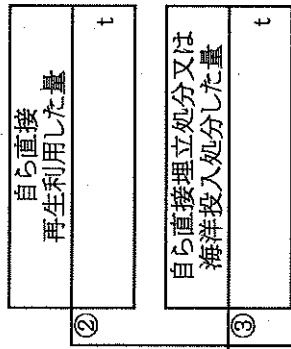 自ら直接
再生利用した量
②
t
自ら直接埋立処分又は
海洋投入処分した量
③
t